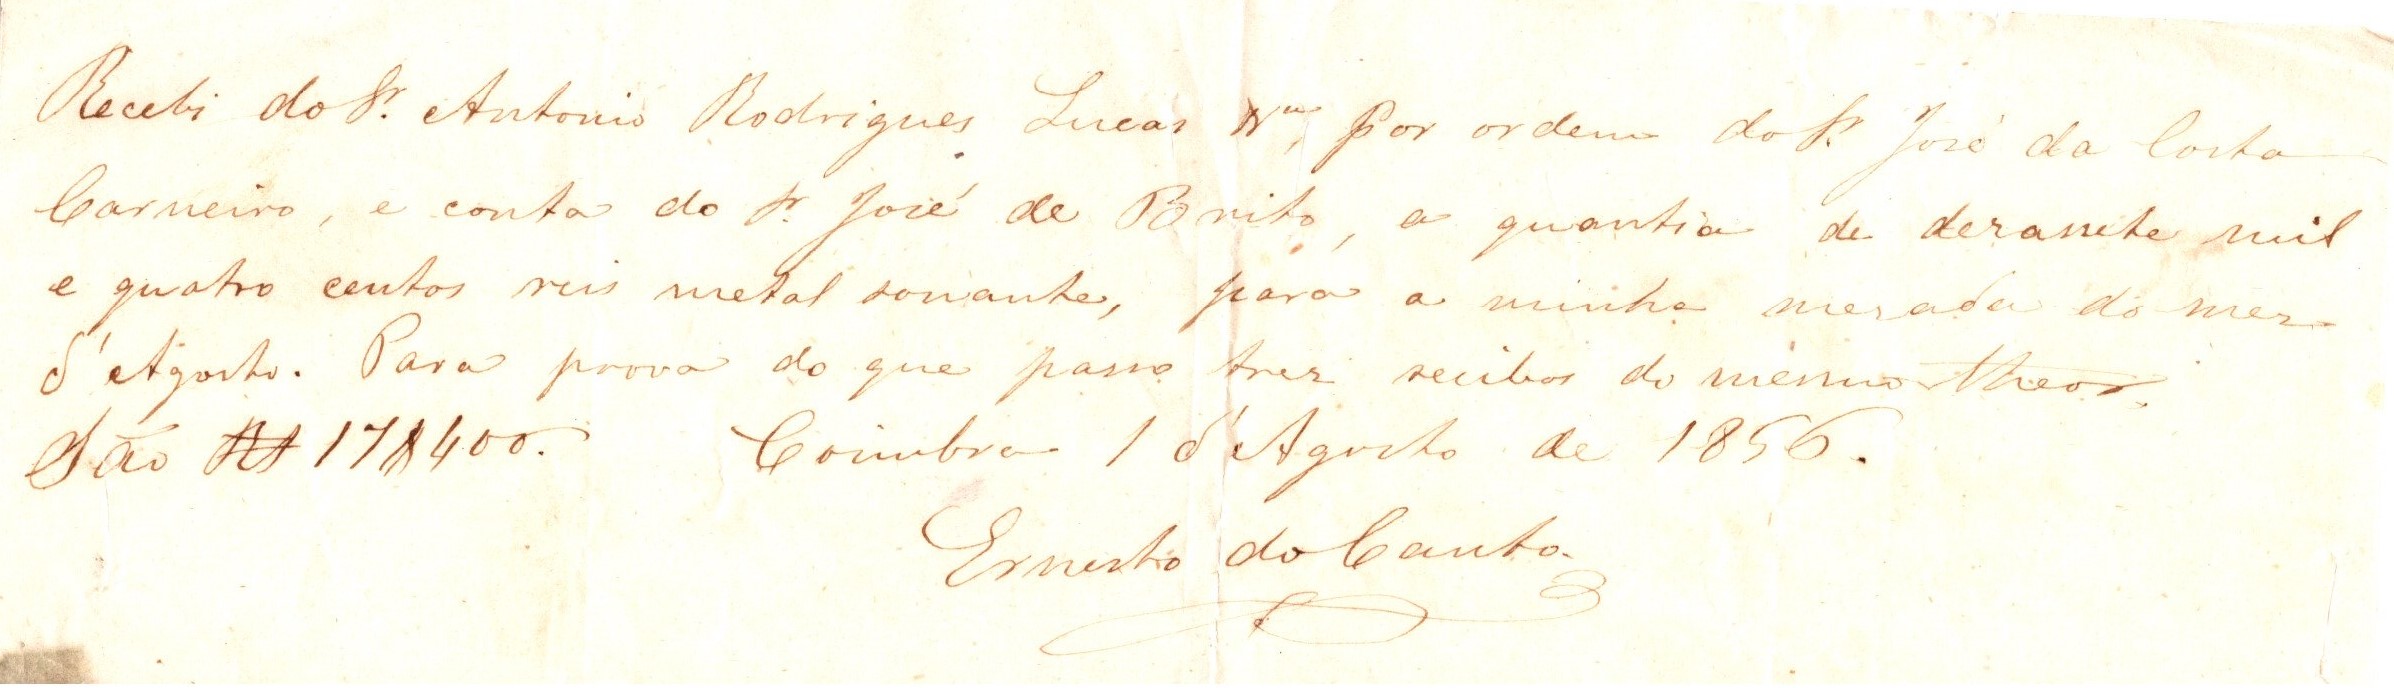 Recebi do Sr. Antonio Rodrigues Lucas por ordem do Sr. José da Costa
Carneiro, e conta do Sr. José de Brito, a quantia de dezassete mil
e quatro centos reis metal sonante, para a minha mezada do mez
d'Agosto. Para prova do que passo trez recibos do mesmo theor.
São Rs 17$400. Coimbra 1 d'Agosto de 1856.
Ernesto do Canto.